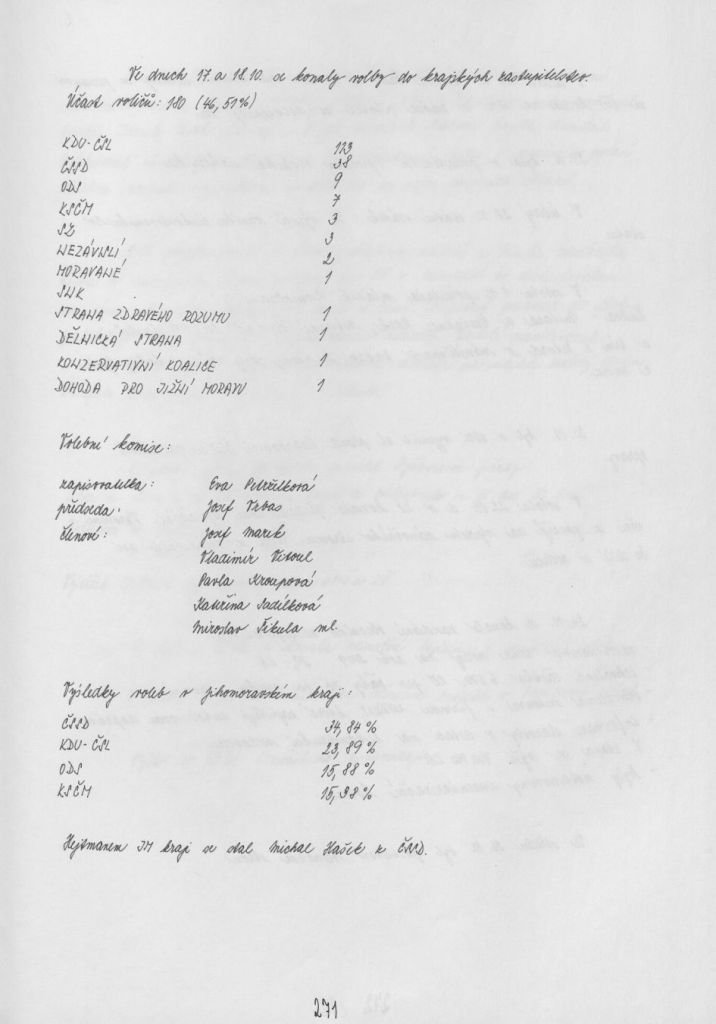 Ve dnech 17. a 18.10. se konaly volby do krajských zastupitelstev.
Účast voličů: 180 (46,51%)
KDU-ČSL 123
ČSSD 38
ODS 9
KSČM 7
SZ 3
NEZÁVISLÍ 3
MORAVANÉ 2
SNK 1
STRANA ZDRAVÉHO ROZUMU 1
DĚLNICKÁ STRANA 1
KONZERVATIVNÍ KOALICE 1
DOHODA PRO JIŽNÍ MORAVU 1
Volební komise:
zapisovatelka: Eva Petržilková
předseda: Josef Vrbas
členové: Josef Marek
Vladimír Vitoul
Pavla Kroupová
Kateřina Sadílková
Miroslav Šikula ml.
Výsledky voleb v jihomoravském kraji:
ČSSD 34,84%
KDU-ČSL 23,89%
ODS 15,88%
KSČM 15,98%
Hejtmanem JM kraji se stal Michal Hašek z ČSSD.
271